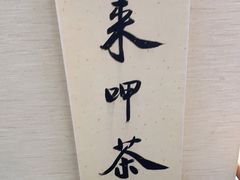 来呷茶